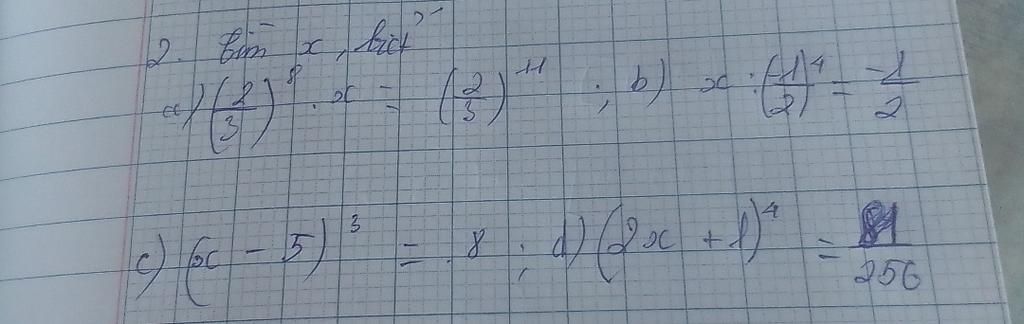 2. Tìm x, biết
a) (2/3)^8 . x = (2/3)^11 ; b) x : (-1/2)^4 = -1/2
c) (x - 5)^3 = 8 ; d) (2x + 1)^4 = 81/256